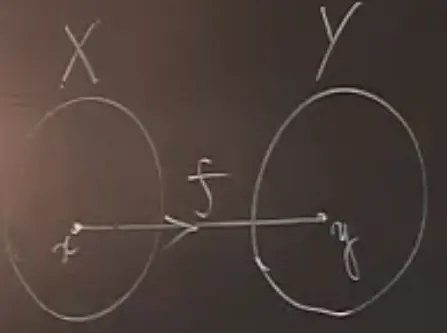 X Y
f
x y